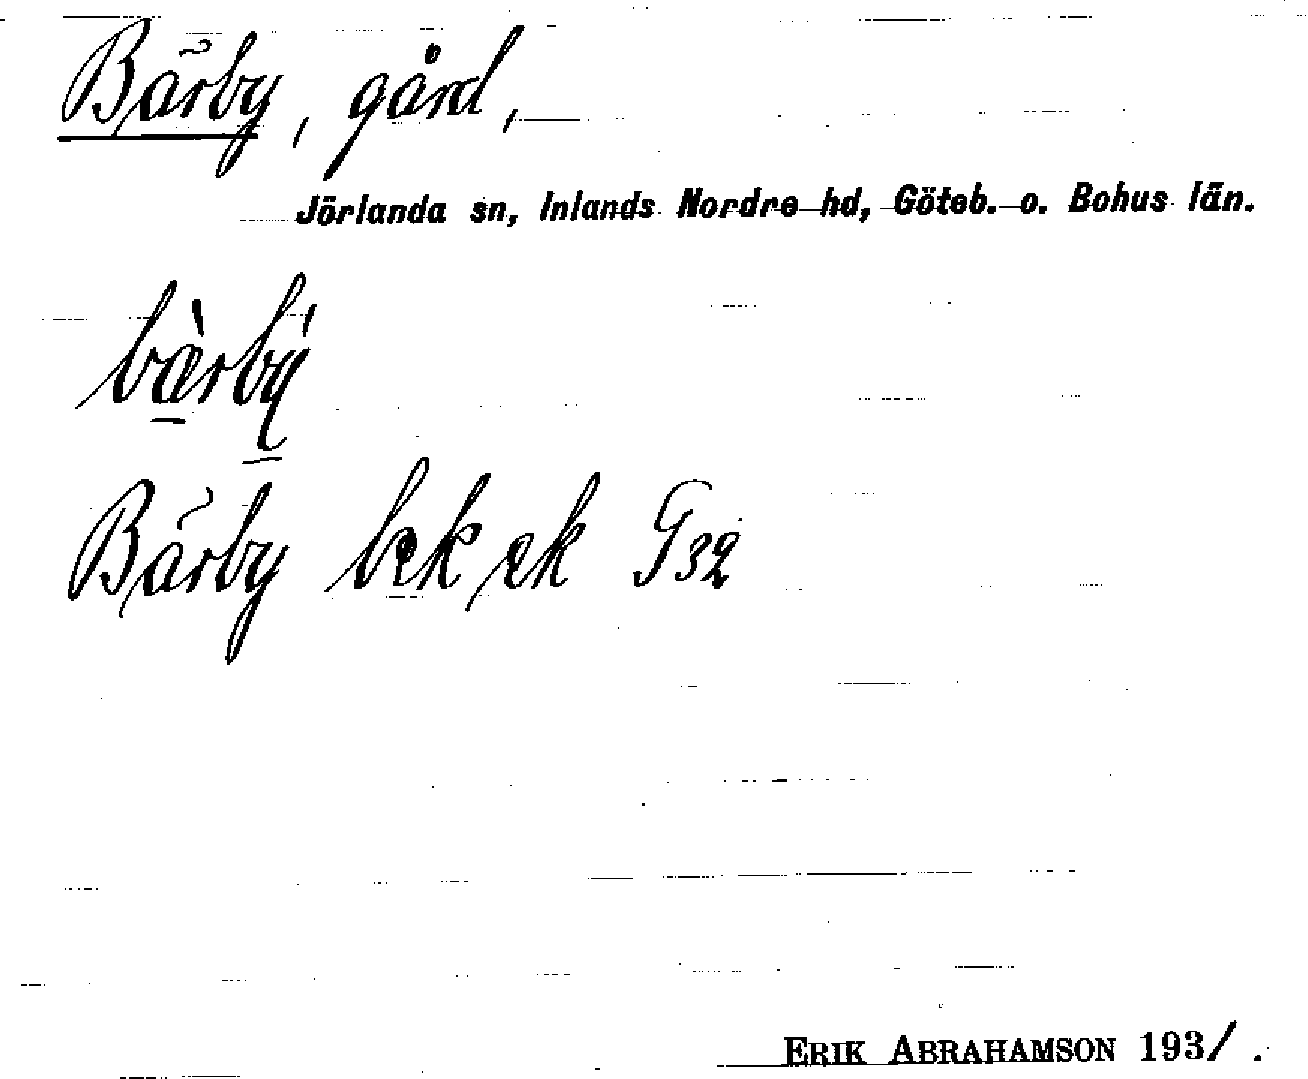 Bärby, gård,
Jörlanda sn, Inlands Nordre hd, Göteb. o. Bohus län.
bæ̀rbý
Bärby ek G32
ERIK ABRAHAMSON 1931.